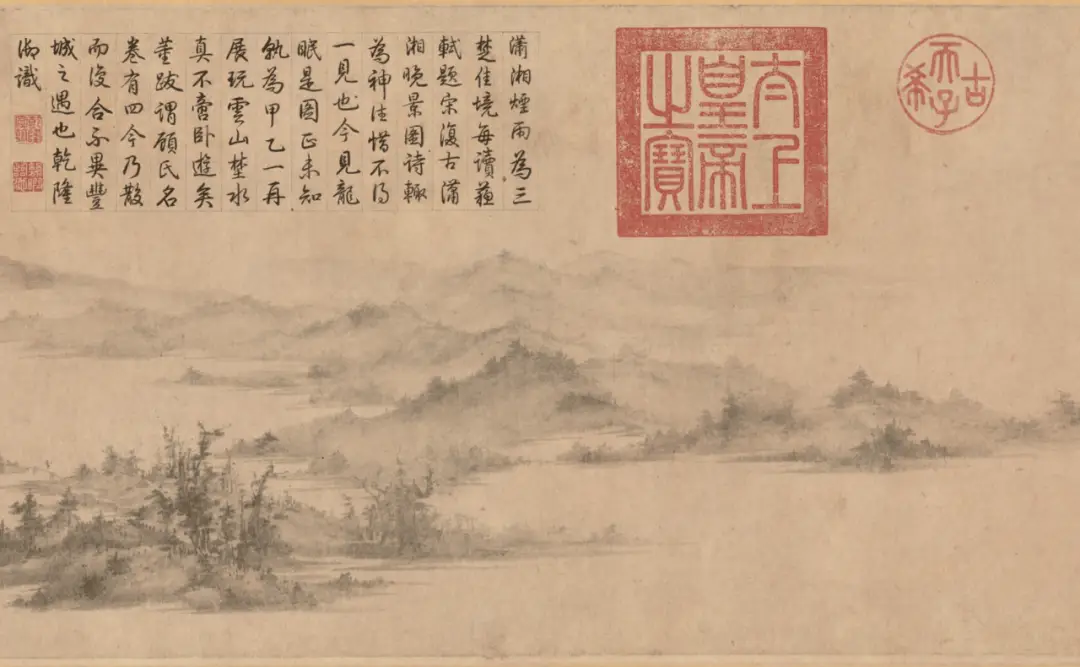 古
希
天子
太上
皇帝
之寶
瀟湘煙雨為三
楚佳境每讀蘓
軾題宋復古瀟
湘晚景圖詩輙
為神往惜不得
一見也今見龍
眠是圖正未知
孰為甲乙一再
展玩雲山埜水
真不啻卧遊矣
董跋謂顧氏名
卷有四今乃散
而復合不異豐
城之遇也乾隆
御識